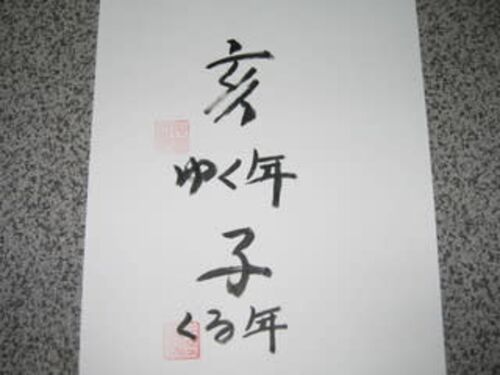 亥
ゆく年
子
くる年